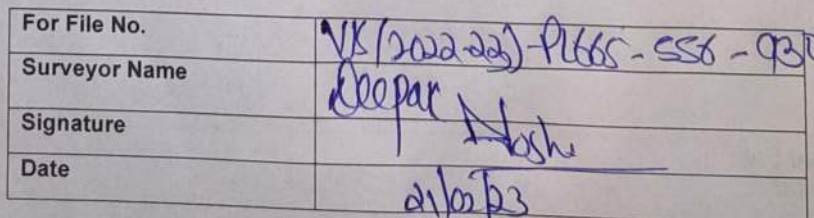 For File No. VIS(2022-23)-PL665-556-930
Surveyor Name Deepak Joshi
Signature
Date 21/02/23